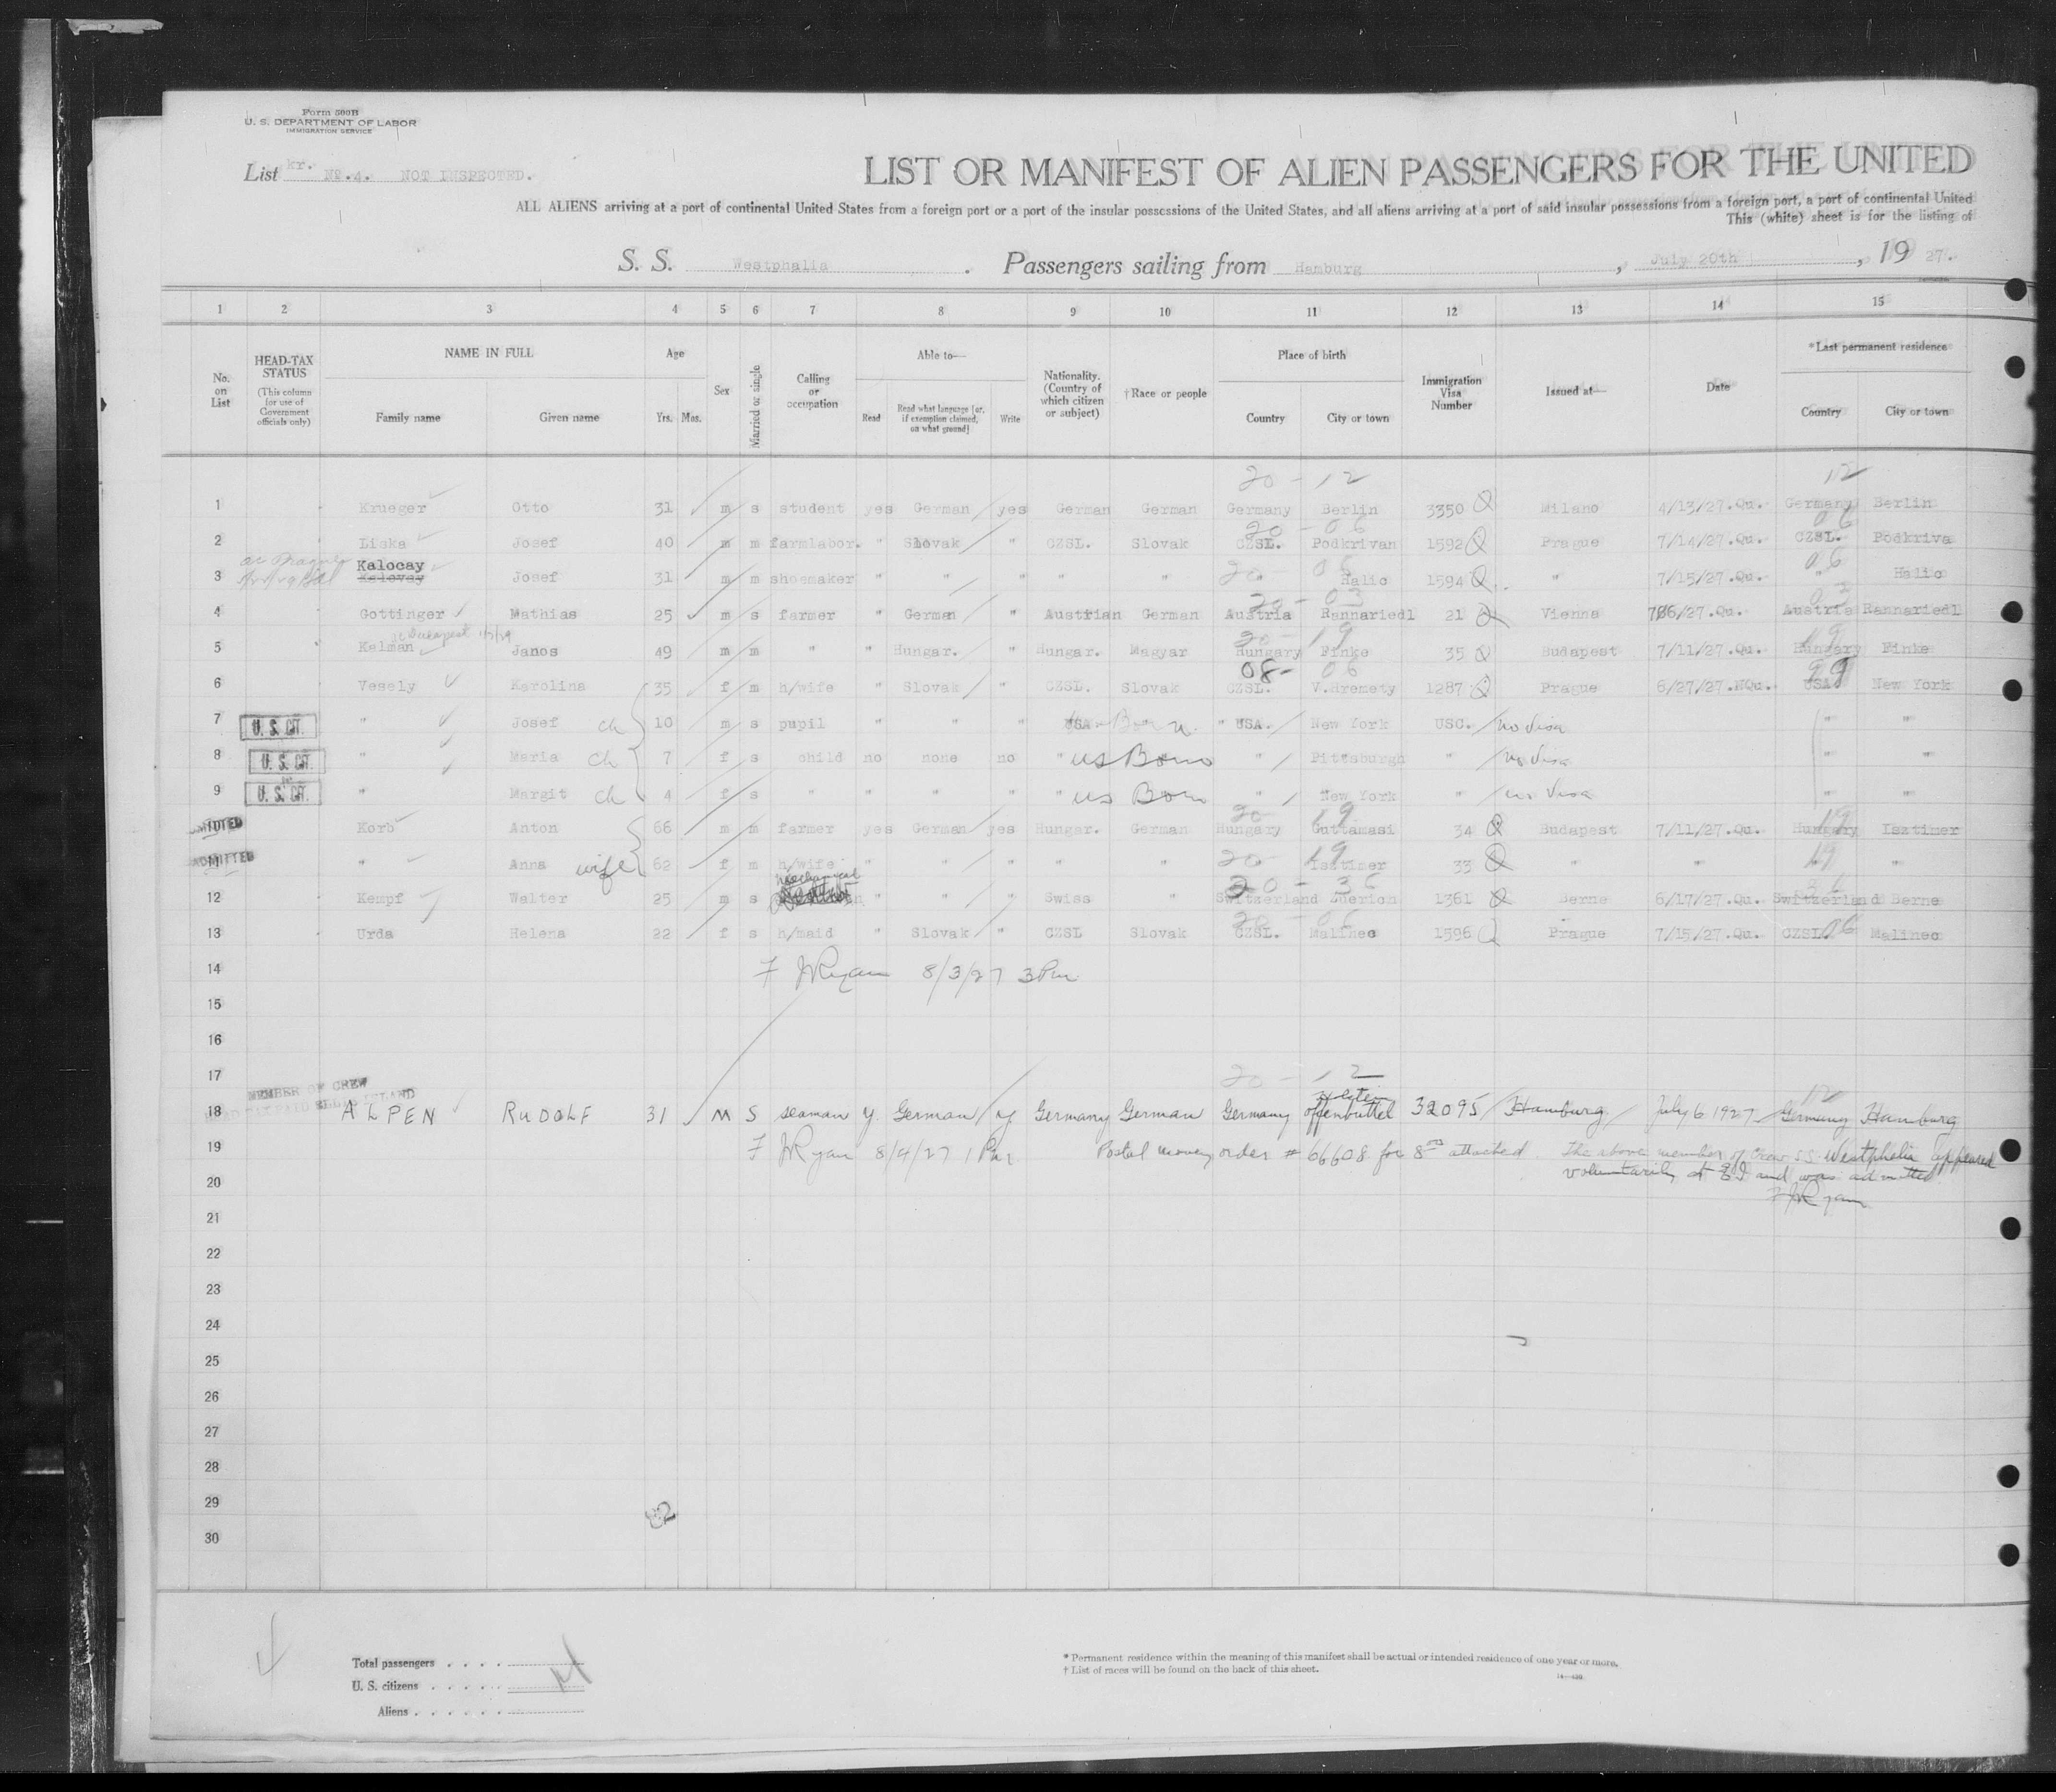 Form 500B
U. S. DEPARTMENT OF LABOR
IMMIGRATION SERVICE
List kr. No. 4. NOT INSPECTED.
LIST OR MANIFEST OF ALIEN PASSENGERS FOR THE UNITED
ALL ALIENS arriving at a port of continental United States from a foreign port or a port of the insular possessions of the United States, and all aliens arriving at a port of said insular possessions from a foreign port, a port of continental United
This (white) sheet is for the listing of
S. S. Westphalia . Passengers sailing from Hamburg , July 20th , 19 27.
1 2 3 4 5 6 7 8 9 10 11 12 13 14 15
No. on List HEAD-TAX STATUS (This column for use of Government officials only) NAME IN FULL Family name Given name Age Yrs. Mos. Sex Married or single Calling or occupation Able to— Read Read what language [or, if exemption claimed, on what ground] Write Nationality. (Country of which citizen or subject) †Race or people Place of birth Country City or town Immigration Visa Number Issued at— Date *Last permanent residence Country City or town
20 - 12 12
1 Krueger Otto 31 m s student yes German yes German German Germany Berlin 3350 Q Milano 4/13/27.Qu. Germany Berlin
20 - 06 06
2 Liska Josef 40 m m farmlabor. " Slovak " CZSL. Slovak CZSL. Podkrivan 1592 Q Prague 7/14/27.Qu. CZSL. Podkriva
Kalocay
20 - 06 06
3 Josef 31 m m shoemaker " " " " " " Halic 1594 Q " 7/15/27.Qu. " Halic
20 - 03 03
4 Gottinger Mathias 25 m s farmer " German " Austrian German Austria Rannariedl 21 Q Vienna 7/6/27.Qu. Austria Rannariedl
20 - 19 19
5 Kelman Janos 49 m m " " Hungar. " Hungar. Magyar Hungary Finke 35 Q Budapest 7/11/27.Qu. Hungary Finke
08- 06 99
6 Vesely Karolina 35 f m h/wife " Slovak " CZSL. Slovak CZSL. V.Hremety 1287 Q Prague 6/27/27.NQu. USA New York
7 U. S. CIT. " Josef ch 10 m s pupil " " " USA Born " USA. New York USC. no visa " "
8 U. S. CIT. " Maria ch 7 f s child no none no " US Born " Pittsburgh " no visa " "
9 U. S. CIT. " Margit ch 4 f s " " " " " US Born " New York " no visa " "
20 - 19 19
10 ADMITTED Korb Anton 66 m m farmer yes German yes Hungar. German Hungary Guttamasi 34 Q Budapest 7/11/27.Qu. Hungary Isztimer
20 - 19 19
11 ADMITTED " Anna wife 62 f m h/wife " " " " " Isztimer 33 Q " " "
mechanical
20 - 36 36
12 Kempf Walter 25 m s " " " Swiss " Switzerland Zuerich 1361 Q Berne 6/17/27.Qu. Switzerland Berne
20 - 06 06
13 Urda Helena 22 f s h/maid " Slovak " CZSL Slovak CZSL. Malinec 1596 Q Prague 7/15/27.Qu. CZSL. Malinec
14 F J Ryan 8/3/27 3 Pm
15
16
17 20 - 12
MEMBER OF CREW
HEAD TAX PAID ELLIS ISLAND
Holstein 12
18 ALPEN RUDOLF 31 M S seaman y. German y. Germany German Germany offenbüttel 32095 Hamburg July 6 1927 Germany Hamburg
19 F J Ryan 8/4/27 1 Pm. Postal money order # 66608 for 8 00 attached. The above member of crew S.S. Westphalia appeared
20 voluntarily at EI and was admitted.
F J Ryan
21
22
23
24
25
26
27
28
29
30
Total passengers . . . . 14
U. S. citizens . . . . .
Aliens . . . . . .
* Permanent residence within the meaning of this manifest shall be actual or intended residence of one year or more.
† List of races will be found on the back of this sheet.
14—430